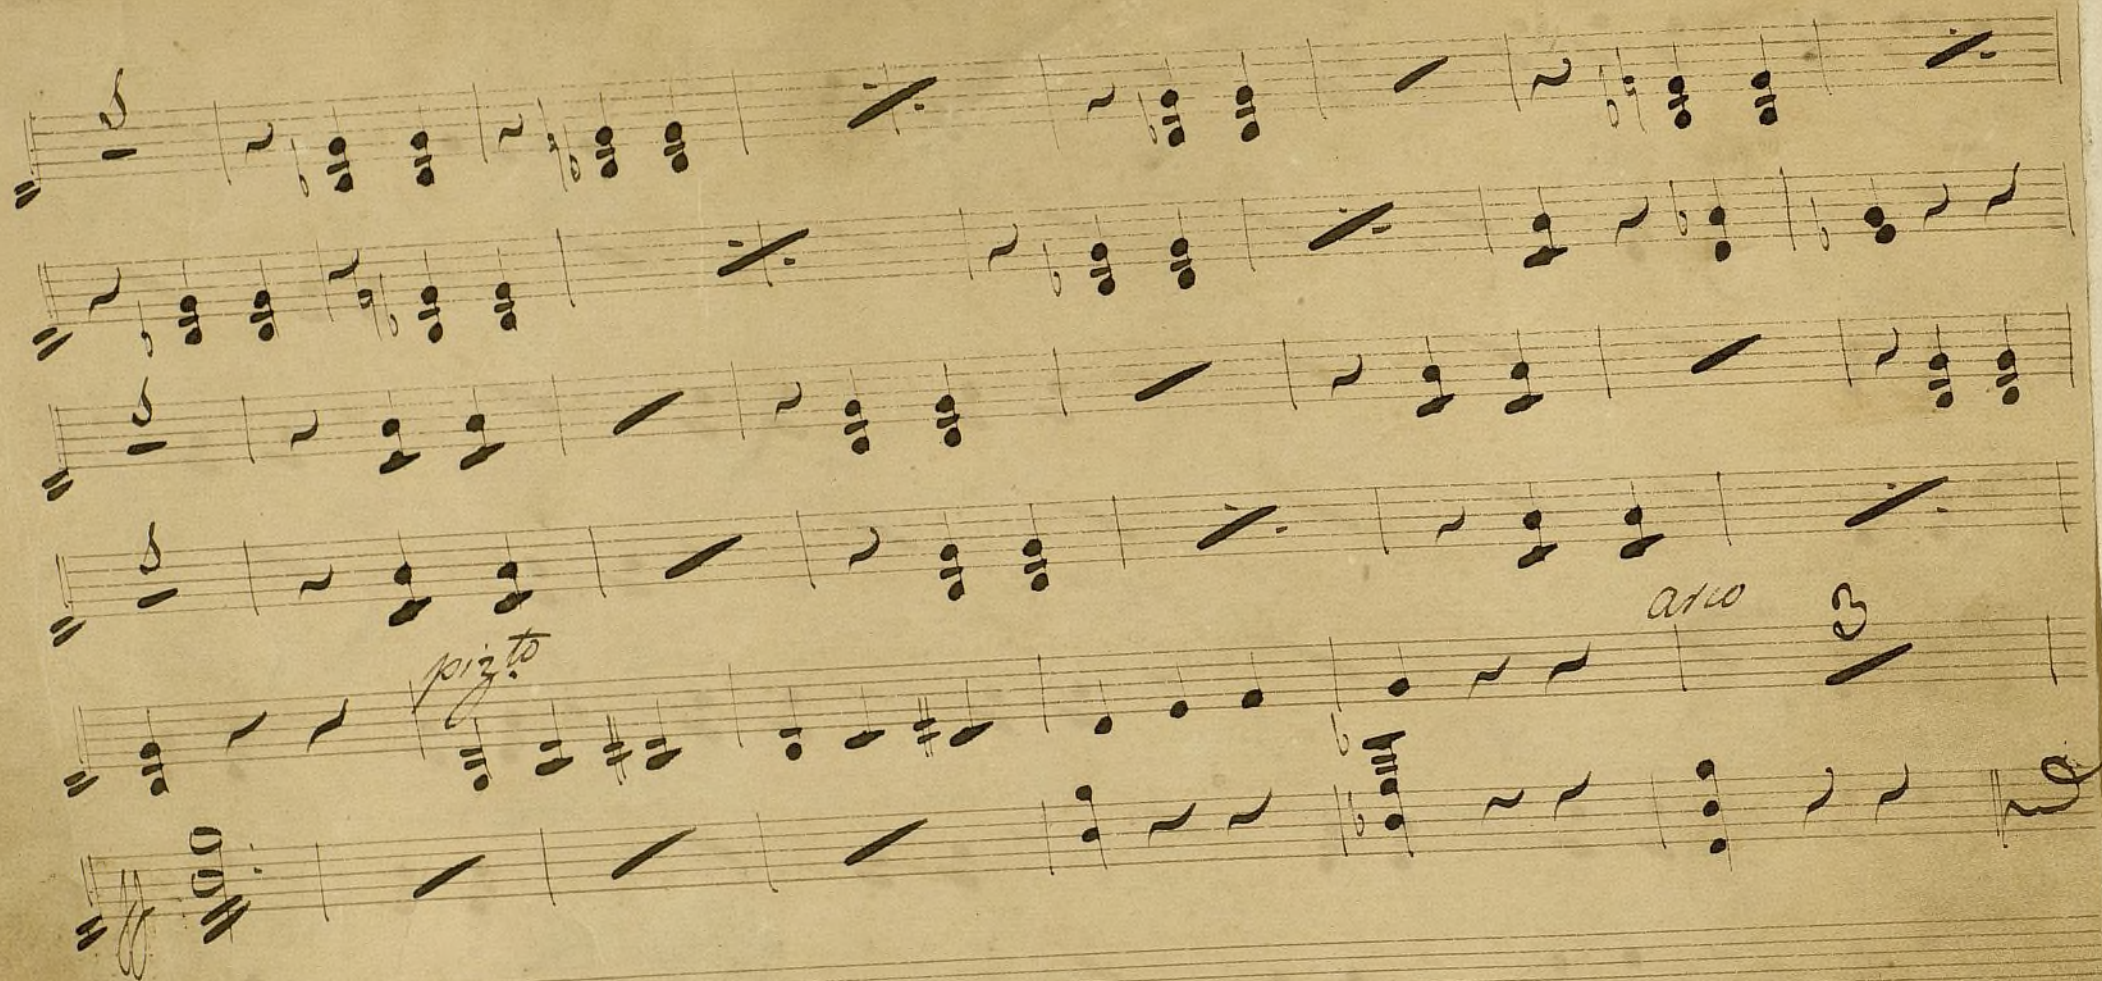 pizto
arco
3
ff